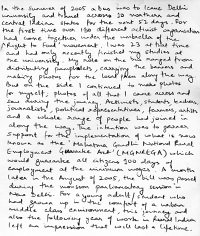 In the summer of 2005 a bus was to leave Delhi
university and travel across 10 northern and
central Indian states for over 52 days. For
the first time over 150 different activist organisations
had come together under the umbrella of the
'Right to Food' movement. I was 23 at this time
and had only recently finished my studies at
the university. My role on the bus ranged from
distributing pamphlets, carrying the banners and
making photos for the local press along the way.
But on the side I continued to make photos
for myself, photos of all that I came across and
saw during the journey. Activists, students, workers,
journalists, political representatives, farmers, whites
and a whole range of people had joined in
along the way. The intention was to garner
support for the implementation of what is now
known as the 'Mahatma Gandhi National Rural
Employment Guarantee Act' (MGNREGA) which
would guarantee all citizens 100 days of
employment at the minimum wages. A month
later in the August of 2005, the bill was passed
during the monsoon parliamentary session
New Delhi. For a young adult/student who
had grown up in the comfort of an urban
middle class environment, this journey and
also the following year of work in rural India
left an impression that will last a lifetime.